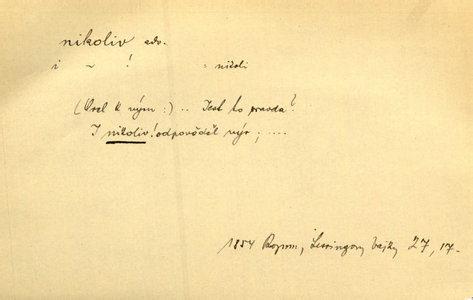 nikoliv adv.
i ~ ! = nikoli
(Orel k výrům :) .. Jest to pravda?
I nikoliv! odpověděl výr; ....
1854 Lessingovy bajky 27, 17.